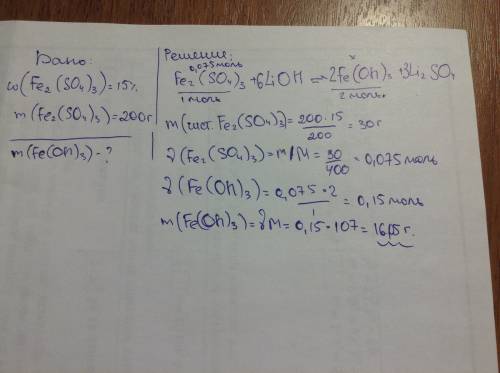 Дано:
w(Fe₂(SO₄)₃)=15%
m(Fe₂(SO₄)₃)=200г
m(Fe(OH)₃)-?
Решение:
0,075моль x
Fe₂(SO₄)₃+6LiOH=2Fe(OH)₃+3Li₂SO₄
1моль 2моль
m(чист. Fe₂(SO₄)₃)=200·15/200=30г
γ(Fe₂(SO₄)₃)=m/M=30/400=0,075моль
γ(Fe(OH)₃)=0,075·2/1=0,15моль
m(Fe(OH)₃)=γM=0,15·107=16,05г.